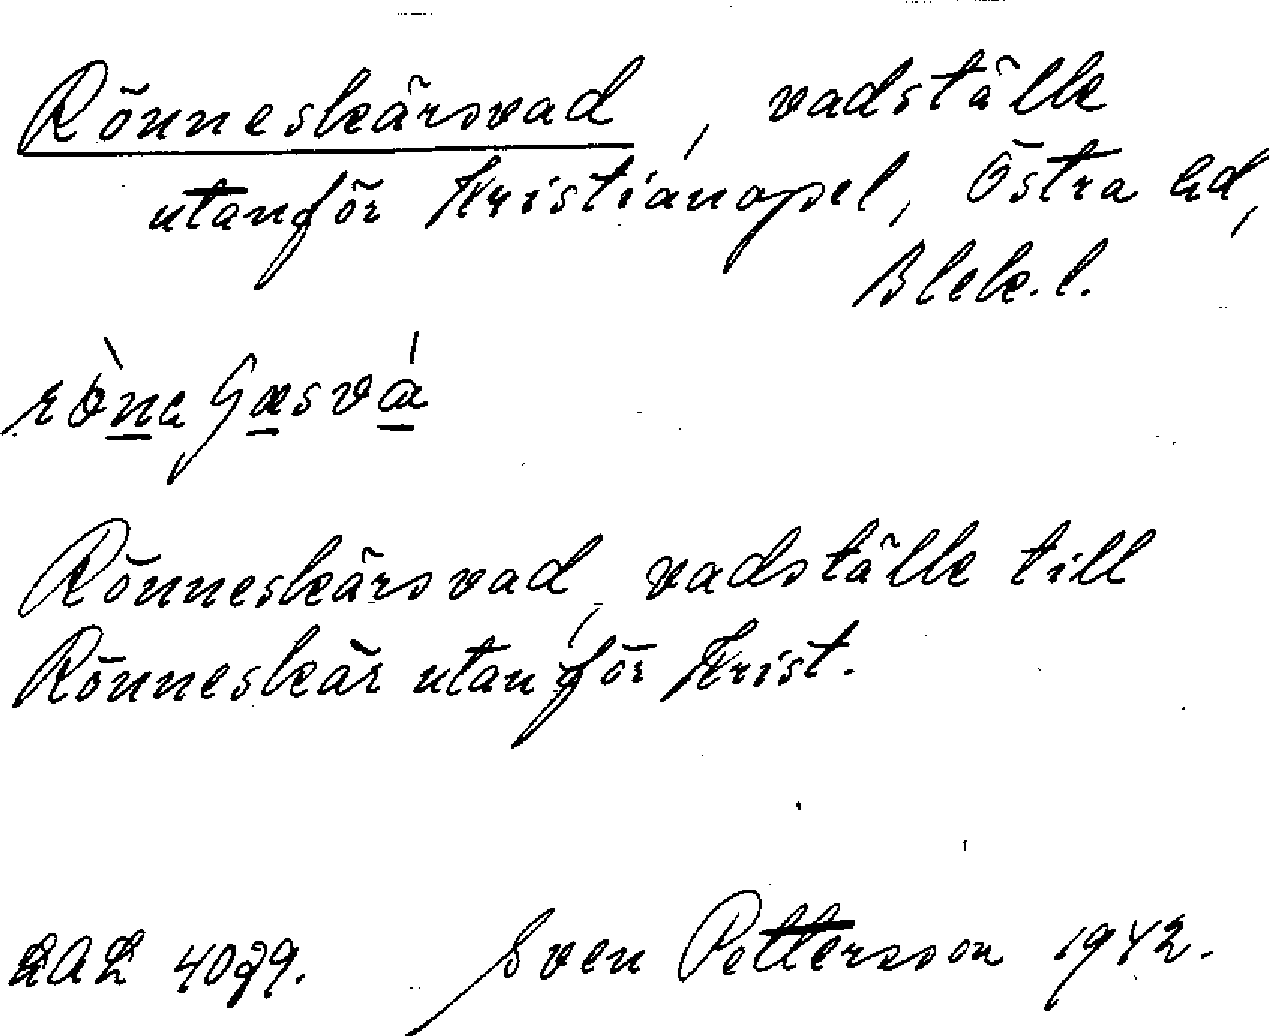 Rönneskärsvad, vadställe
utanför Kristianopel, Östra hd,
Blek. l.
Rönneskärsvad, vadställe till
Rönneskär utanför Krist.
Sven Pettersson 1942.